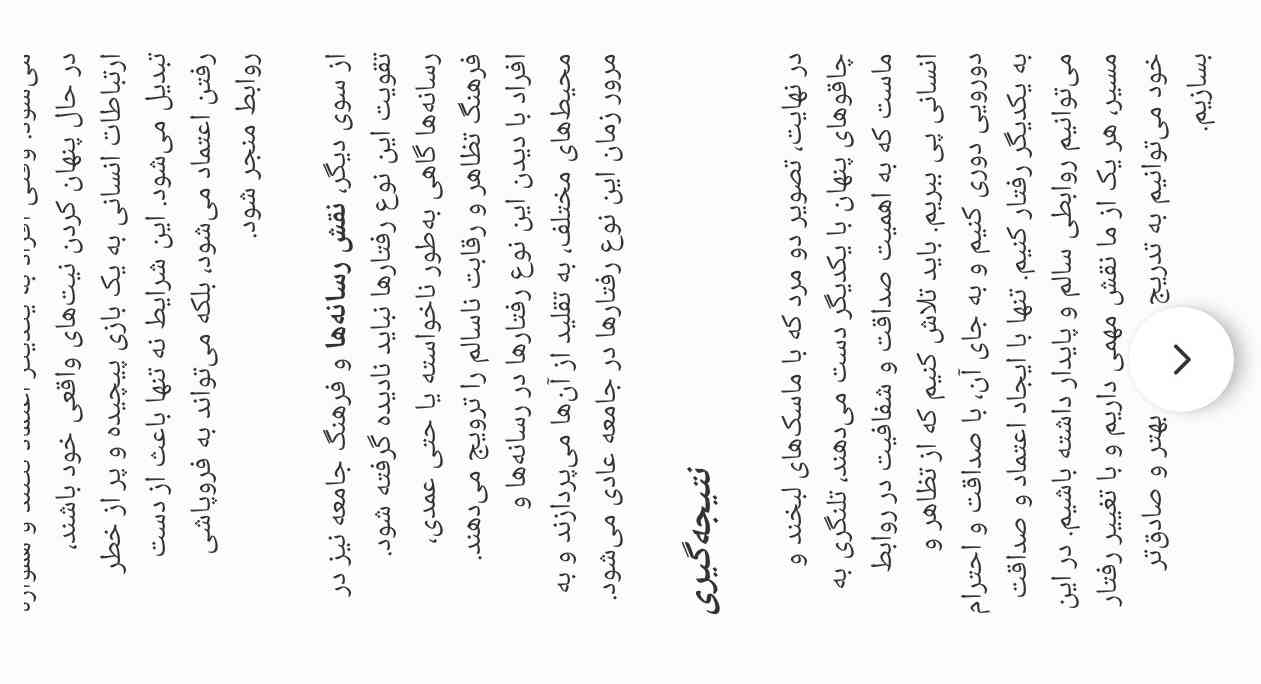 در حال پنهان کردن نیت‌های واقعی خود باشند،
ارتباطات انسانی به یک بازی پیچیده و پر از خطر
تبدیل می‌شود. این شرایط نه تنها باعث از دست
رفتن اعتماد می‌شود، بلکه می‌تواند به فروپاشی
روابط منجر شود.
از سوی دیگر، نقش رسانه‌ها و فرهنگ جامعه نیز در
تقویت این نوع رفتارها نباید نادیده گرفته شود.
رسانه‌ها گاهی به‌طور ناخواسته یا حتی عمدی،
فرهنگ تظاهر و رقابت ناسالم را ترویج می‌دهند.
افراد با دیدن این نوع رفتارها در رسانه‌ها و
محیط‌های مختلف، به تقلید از آن‌ها می‌پردازند و به
مرور زمان این نوع رفتارها در جامعه عادی می‌شود.
نتیجه‌گیری
در نهایت، تصویر دو مرد که با ماسک‌های لبخند و
چاقوهای پنهان با یکدیگر دست می‌دهند، تلنگری به
ماست که به اهمیت صداقت و شفافیت در روابط
انسانی پی ببریم. باید تلاش کنیم که از تظاهر و
دورویی دوری کنیم و به جای آن، با صداقت و احترام
به یکدیگر رفتار کنیم. تنها با ایجاد اعتماد و صداقت
می‌توانیم روابطی سالم و پایدار داشته باشیم. در این
مسیر، هر یک از ما نقش مهمی داریم و با تغییر رفتار
خود می‌توانیم به تدریج بهتر و صادق‌تر
بسازیم.